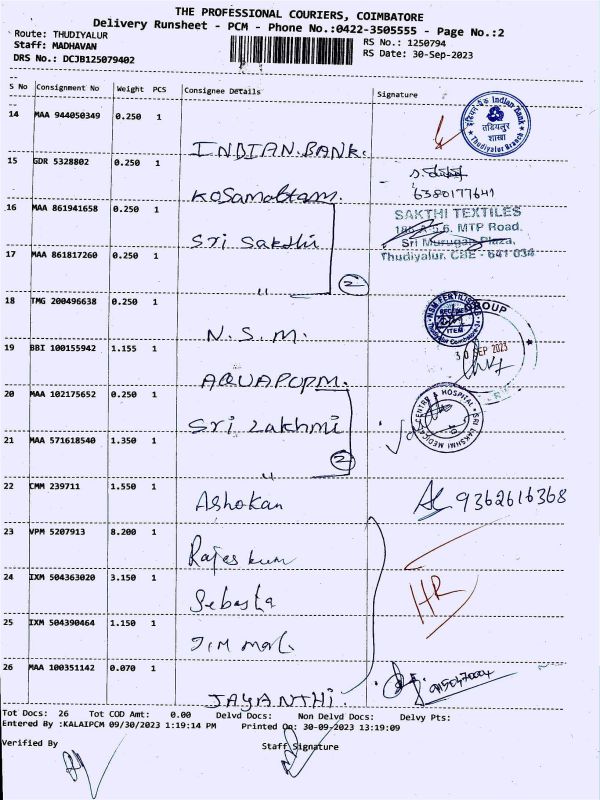 THE PROFESSIONAL COURIERS, COIMBATORE
Delivery Runsheet - PCM - Phone No.:0422-3505555 - Page No.:2
Route: THUDIYALUR
Staff: MADHAVAN
RS No.: 1250794
DRS No.: DCJB125079402
RS Date: 30-Sep-2023
S No Consignment No Weight PCS Consignee Details Signature
14 MAA 944050349 0.250 1 INDIAN.BANK.
इंडियन बैंक Indian Bank
तडियलुर
शाखा
Thudiyalur Branch
15 GDR 5328802 0.250 1 Kosamattam.
6380177641
16 MAA 861941658 0.250 1 Sri Sakthi
SAKTHI TEXTILES
MTP Road,
Sri Murugan Plaza,
Thudiyalur, CBE - 641 034
17 MAA 861817260 0.250 1 "
2
18 TMG 200496638 0.250 1 N.S.M.
ITEM
GROUP
30 SEP 2023
19 BBI 100155942 1.155 1 AQUAPUPM.
20 MAA 102175652 0.250 1 Sri Lakhmi
SRI LAKSHMI MEDICAL CENTRE & HOSPITAL
21 MAA 571618540 1.350 1 "
2
22 CMM 239711 1.550 1 Ashokan
9362616368
23 VPM 5207913 8.200 1 Rajes kum
24 IXM 504363020 3.150 1 Sebasta
HR
25 IXM 504390464 1.150 1
26 MAA 100351142 0.070 1 JAYANTHI.
Tot Docs: 26 Tot COD Amt: 0.00 Delvd Docs: Non Delvd Docs: Delvy Pts:
Entered By :KALAIPCM 09/30/2023 1:19:14 PM Printed On: 30-09-2023 13:19:09
Verified By Staff Signature